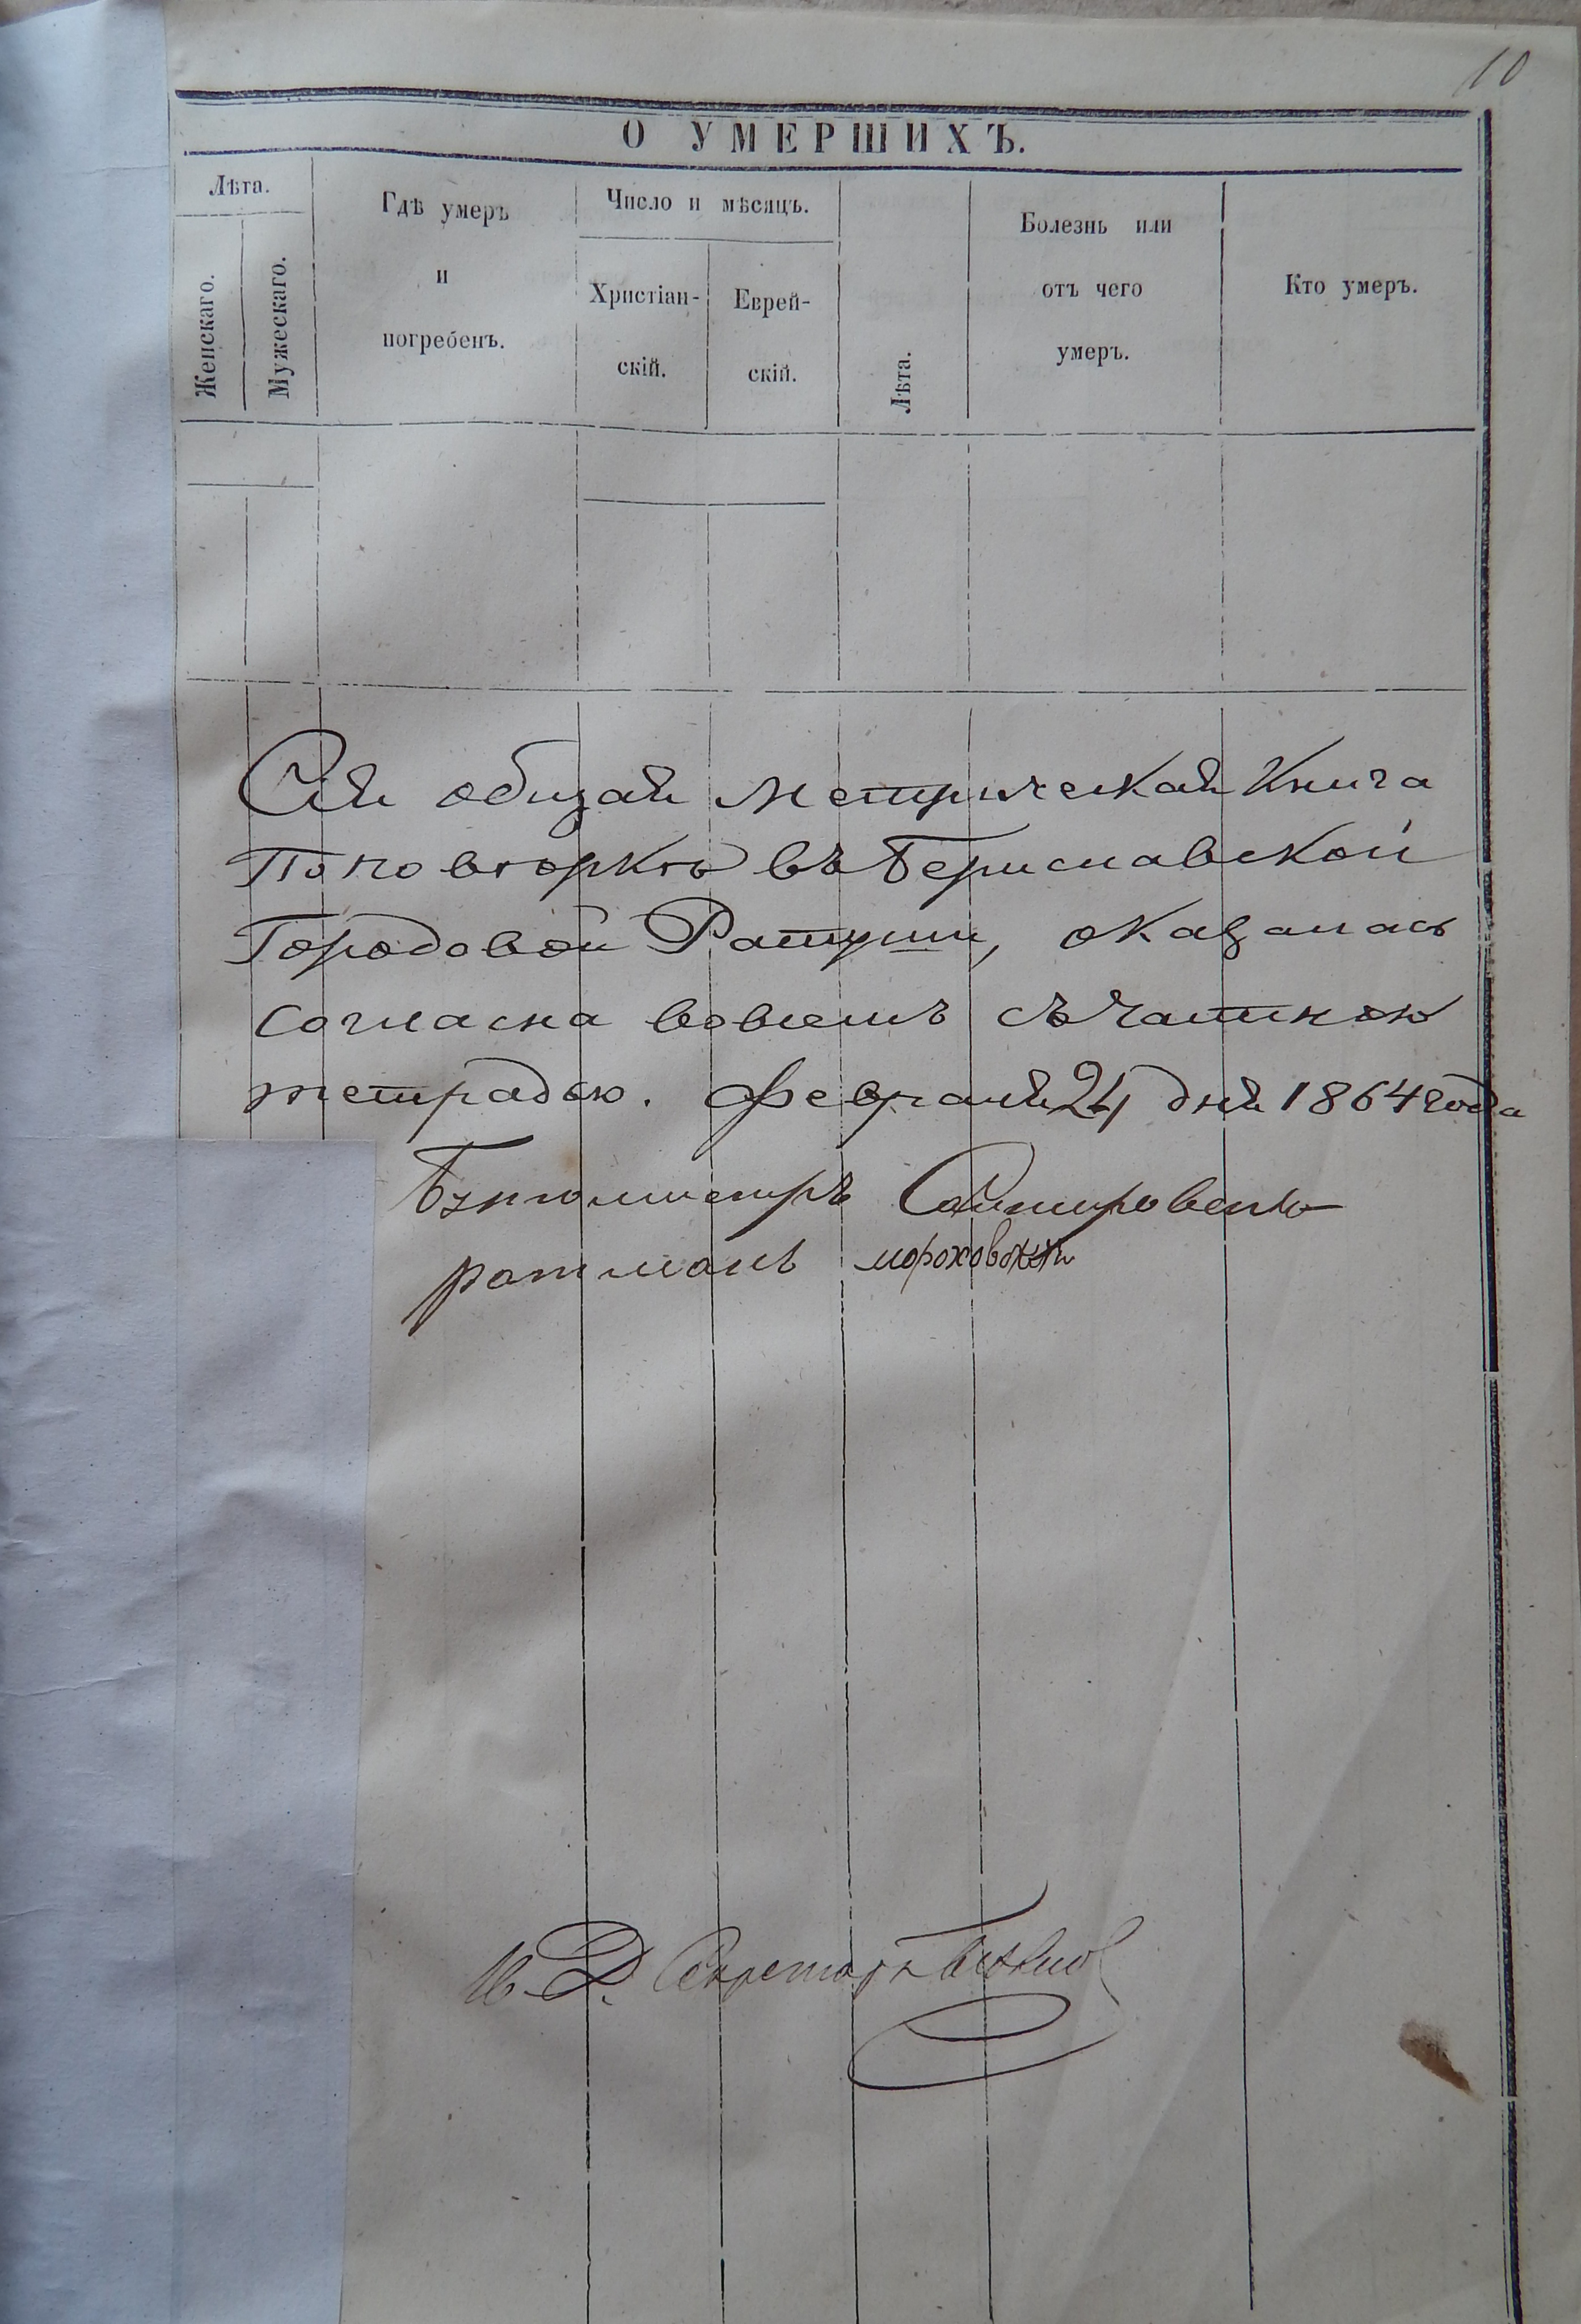 10
О УМЕРШИХЪ.
Лѣта.
Женскаго.
Мужескаго.
Гдѣ умеръ
и
погребенъ.
Число и мѣсяцъ.
Христіан-
скій.
Еврей-
скій.
Лѣта.
Болезнь или
отъ чего
умеръ.
Кто умеръ.
Сія общая метрическая Книга
По поверкѣ въ Бериславской
Городовой Ратуши, оказалась
согласна во всемъ съ частною
тетрадью. Февраля 24 дня 1864 года
Бургомистръ
ратманъ
И. Д. Секретаря